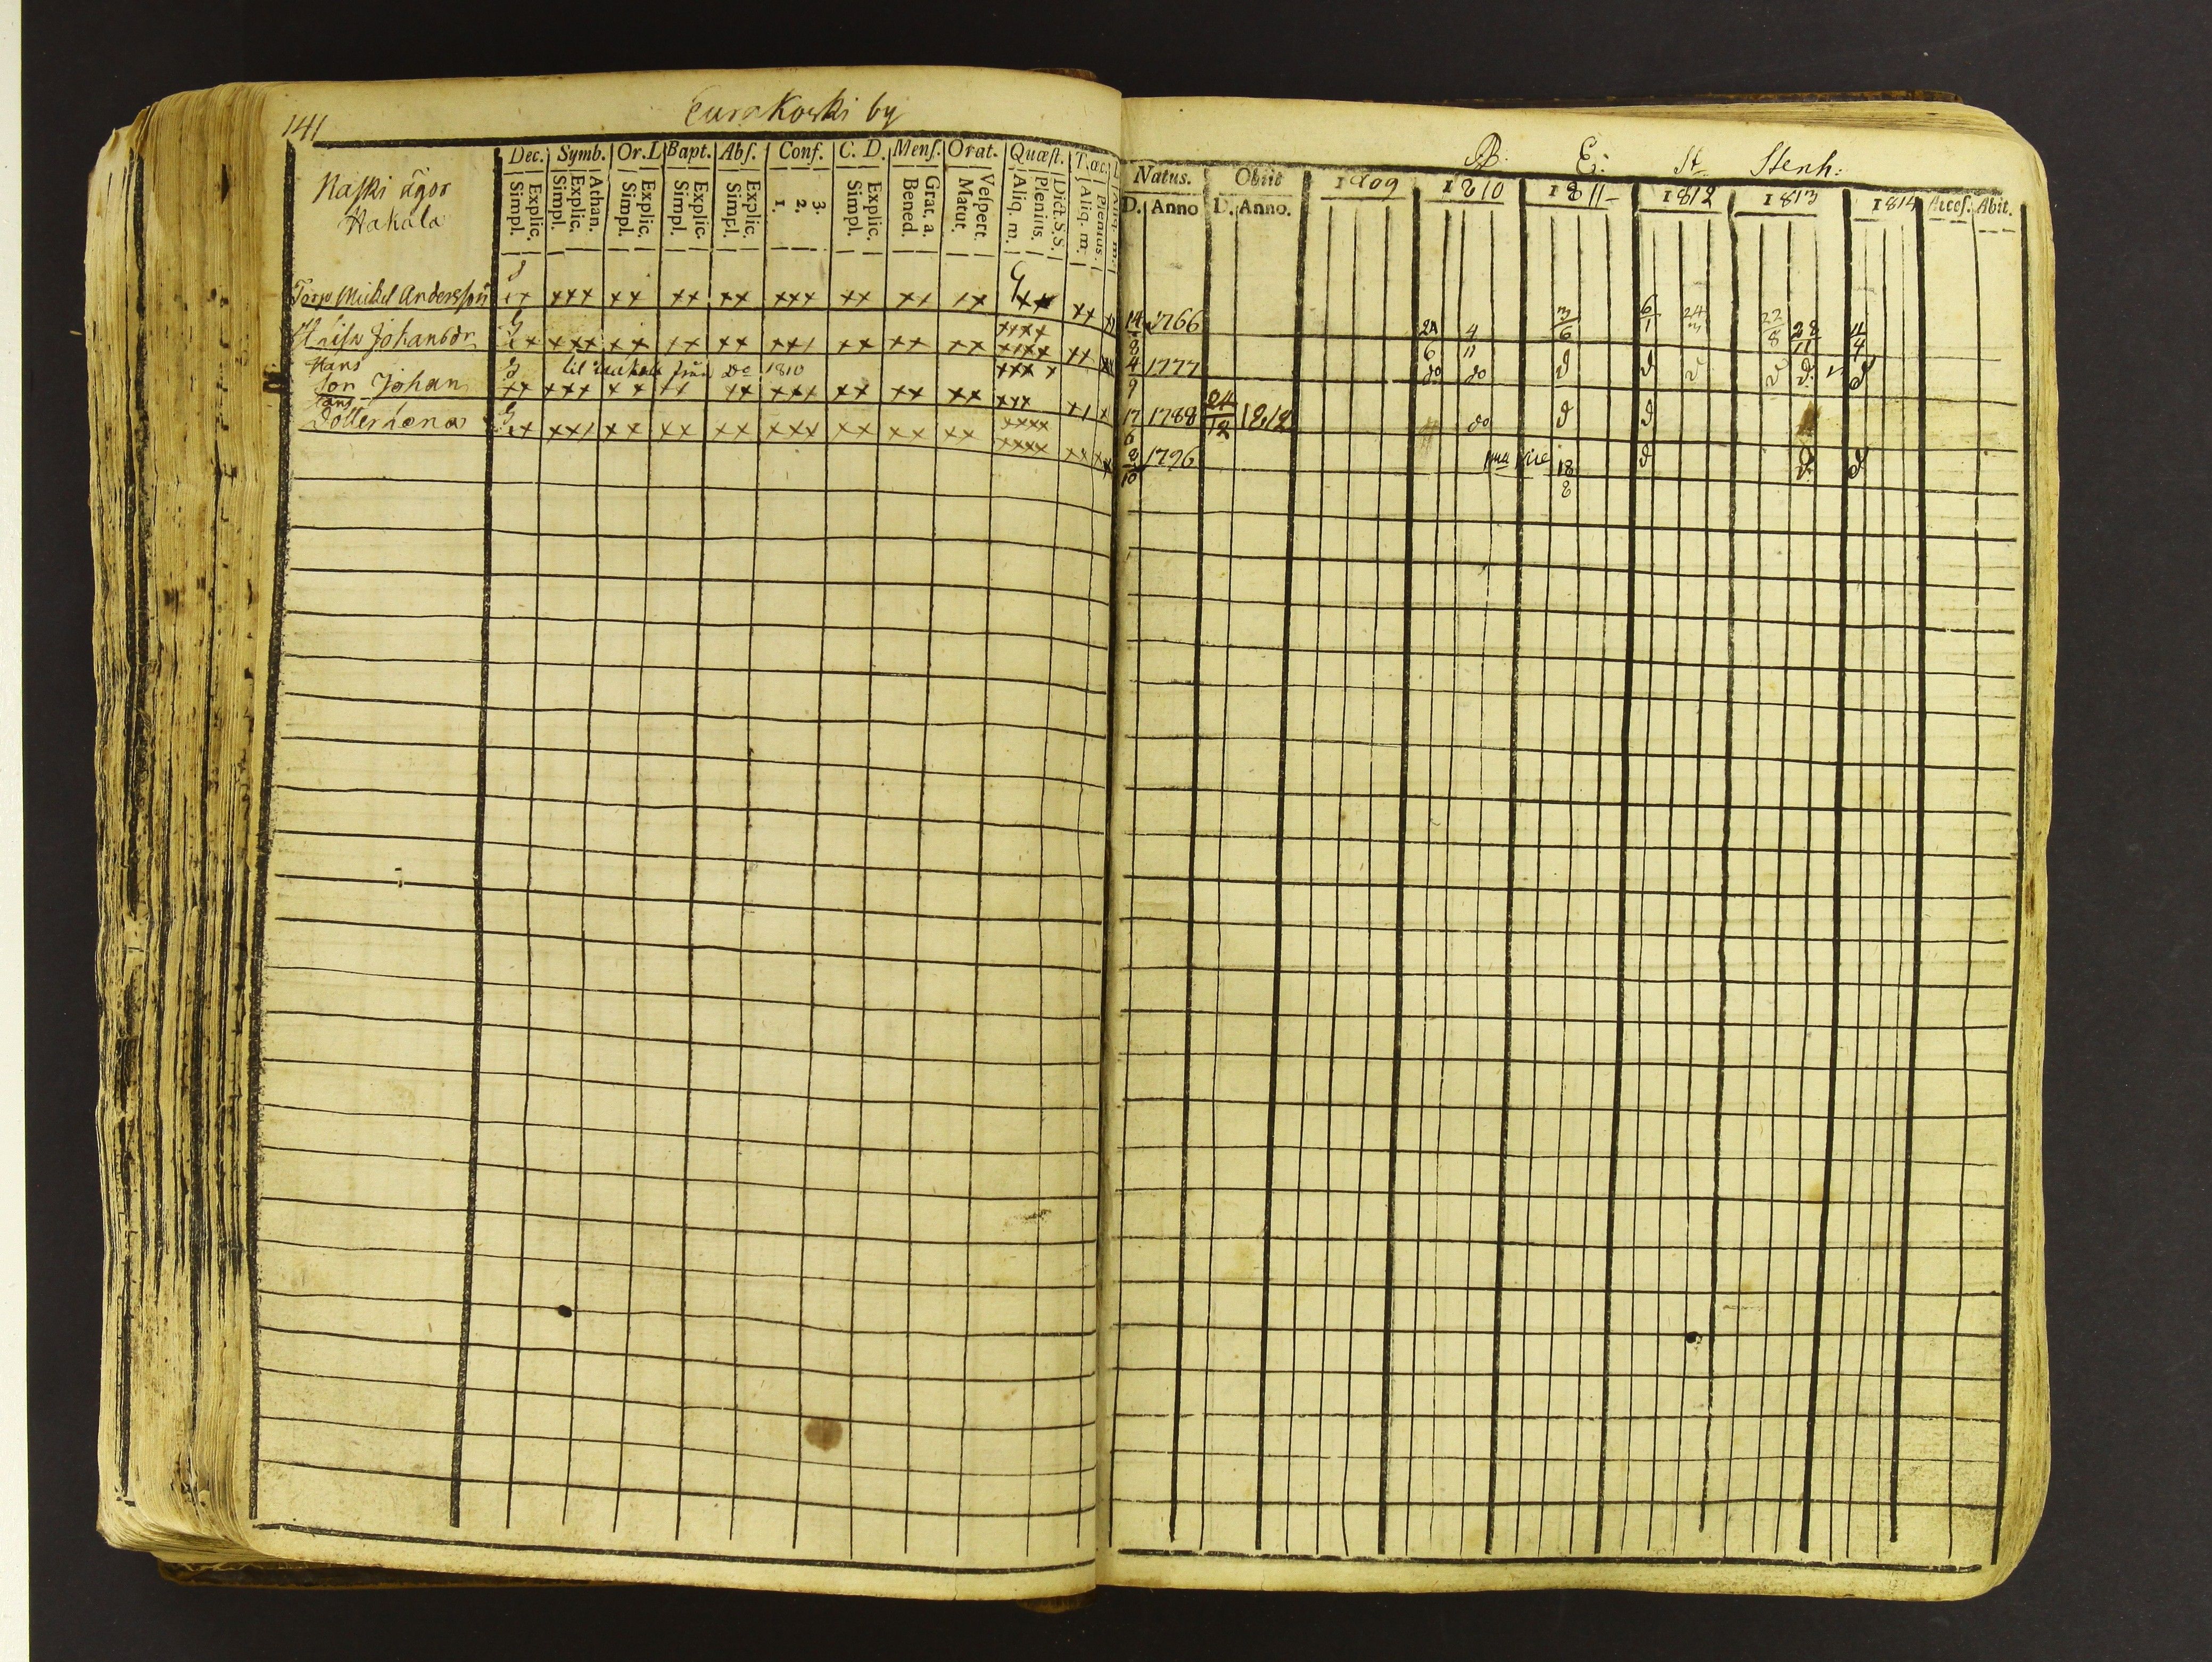 141
Eurakoski by
Naski ägor
Wakala
Dec. Symb. Or.L Bapt. Abſ. Conf. C. D. Menſ. Orat. Quæſt. T.œc.
Explic. Simpl. Athan. Explic. Simpl. Explic. Simpl. Explic. Simpl. Explic. Simpl. 3. 2. 1. Explic. Simpl. Grat. a. Bened. Veſpert. Matut. Dict. S.S. Plenius. Aliq. m. Plenius. Aliq. m.
B. E: St. Stenh:
Natus. Obiit 1809 1810 1811 1812 1813 1814 Acceſ. Abit.
D. Anno D. Anno.
Torp Michel Andersson 14/8 1766 24/6 4/11 3/6 6/1 24/3 22/8 28/11 11/4
H Lisa Johansdr 4/9 1777 do do d d d d d d
Hans Son Johan 1810 17/6 1788 24/12 1812 do d d
Hans Dotter Lena 8/10 1796 18/8 d d d